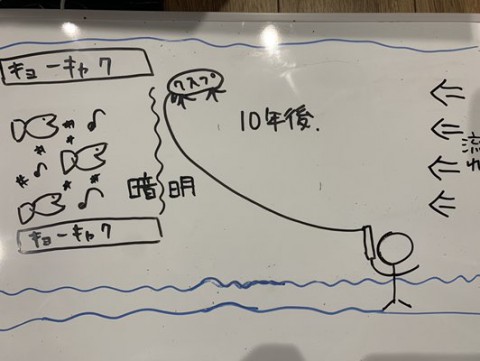 キョーキャク
ワスプ
10年後.
流れ
暗 明
キョーキャク